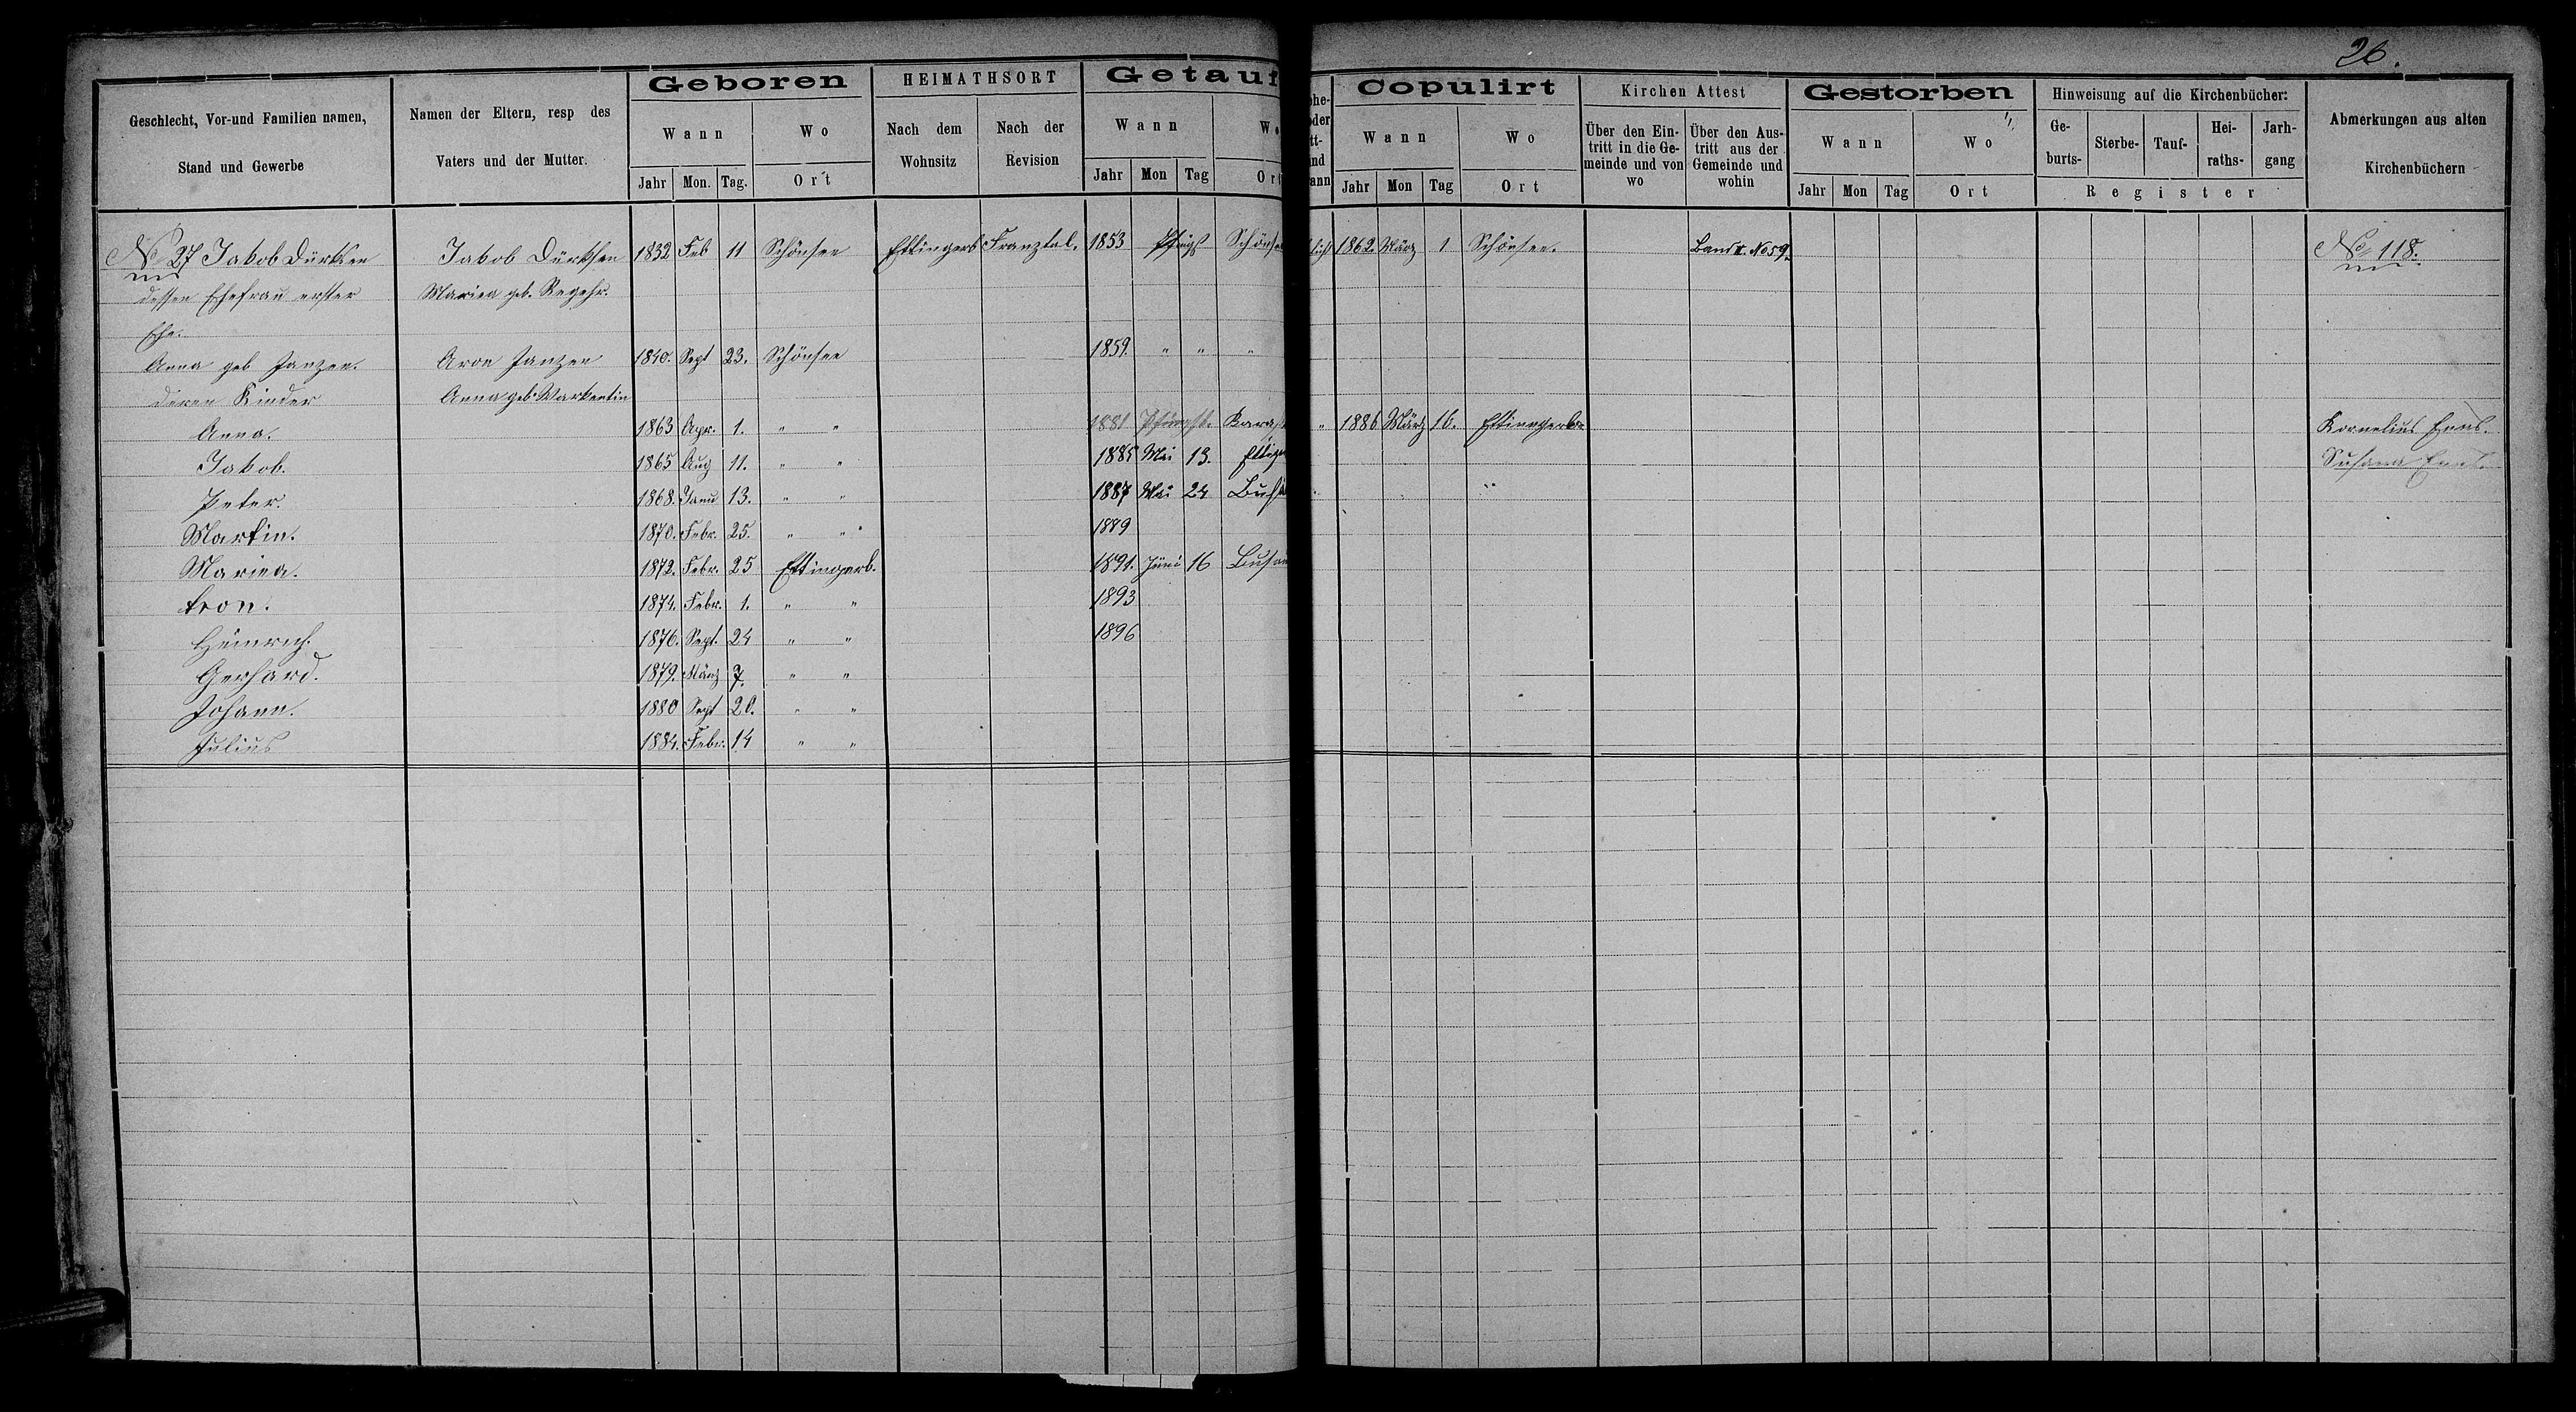 26.
Geschlecht, Vor-und Familien namen, Stand und Gewerbe
Namen der Eltern, resp des Vaters und der Mutter.
Geboren
Wann
Wo
Jahr Mon. Tag. Ort
HEIMATHSORT
Nach dem Wohnsitz
Nach der Revision
Getauf
Wann
Jahr Mon Tag Ort
Copulirt
Wann
Wo
Jahr Mon Tag Ort
Kirchen Attest
Über den Ein-tritt in die Ge-meinde und von wo
Über den Aus-tritt aus der Gemeinde und wohin
Gestorben
Wann
Wo
Jahr Mon Tag Ort
Hinweisung auf die Kirchenbücher:
Ge-burts- Sterbe- Tauf- Hei-raths- Jarh-gang
Register
Abmerkungen aus alten Kirchenbüchern
No 27 Jakob Dürksen Jakob Dürksen 1832 Feb 11 Schönsee Ettingerb Franztal. 1853 Pfingst Schönse 1862. März 1 Schönsee. Band II. No 59. No 118.
dessen Ehefrau erster Mariea geb. Regehr.
Ehe.
Anna geb Janzen. Aron Janzen 1840. Sept 23. Schönsee 1859. " " "
deren Kinder Anna geb. Warkentin
Anna. 1863 Apr. 1. " " 1881 Pfingst. Karas " 1886 März 16. Ettingerb. Kornelius Enns.
Jakob. 1865 Aug 11. " " 1885 Mai 13. Susana Enns.
Peter. 1868. Janu 13. " " 1887 Mai 24 Busa
Martin. 1870. Febr. 25. " " 1889
Mariea. 1872. Febr. 25 Ettingerb. 1891. Juni 16 Busau
Aron. 1874. Febr. 1. " " 1893
Heinrich. 1876. Sept. 24 " " 1896
Gerhard. 1879. März 7. " "
Johann. 1880 Sept 20. " "
Julius 1884. Febr. 14 " "